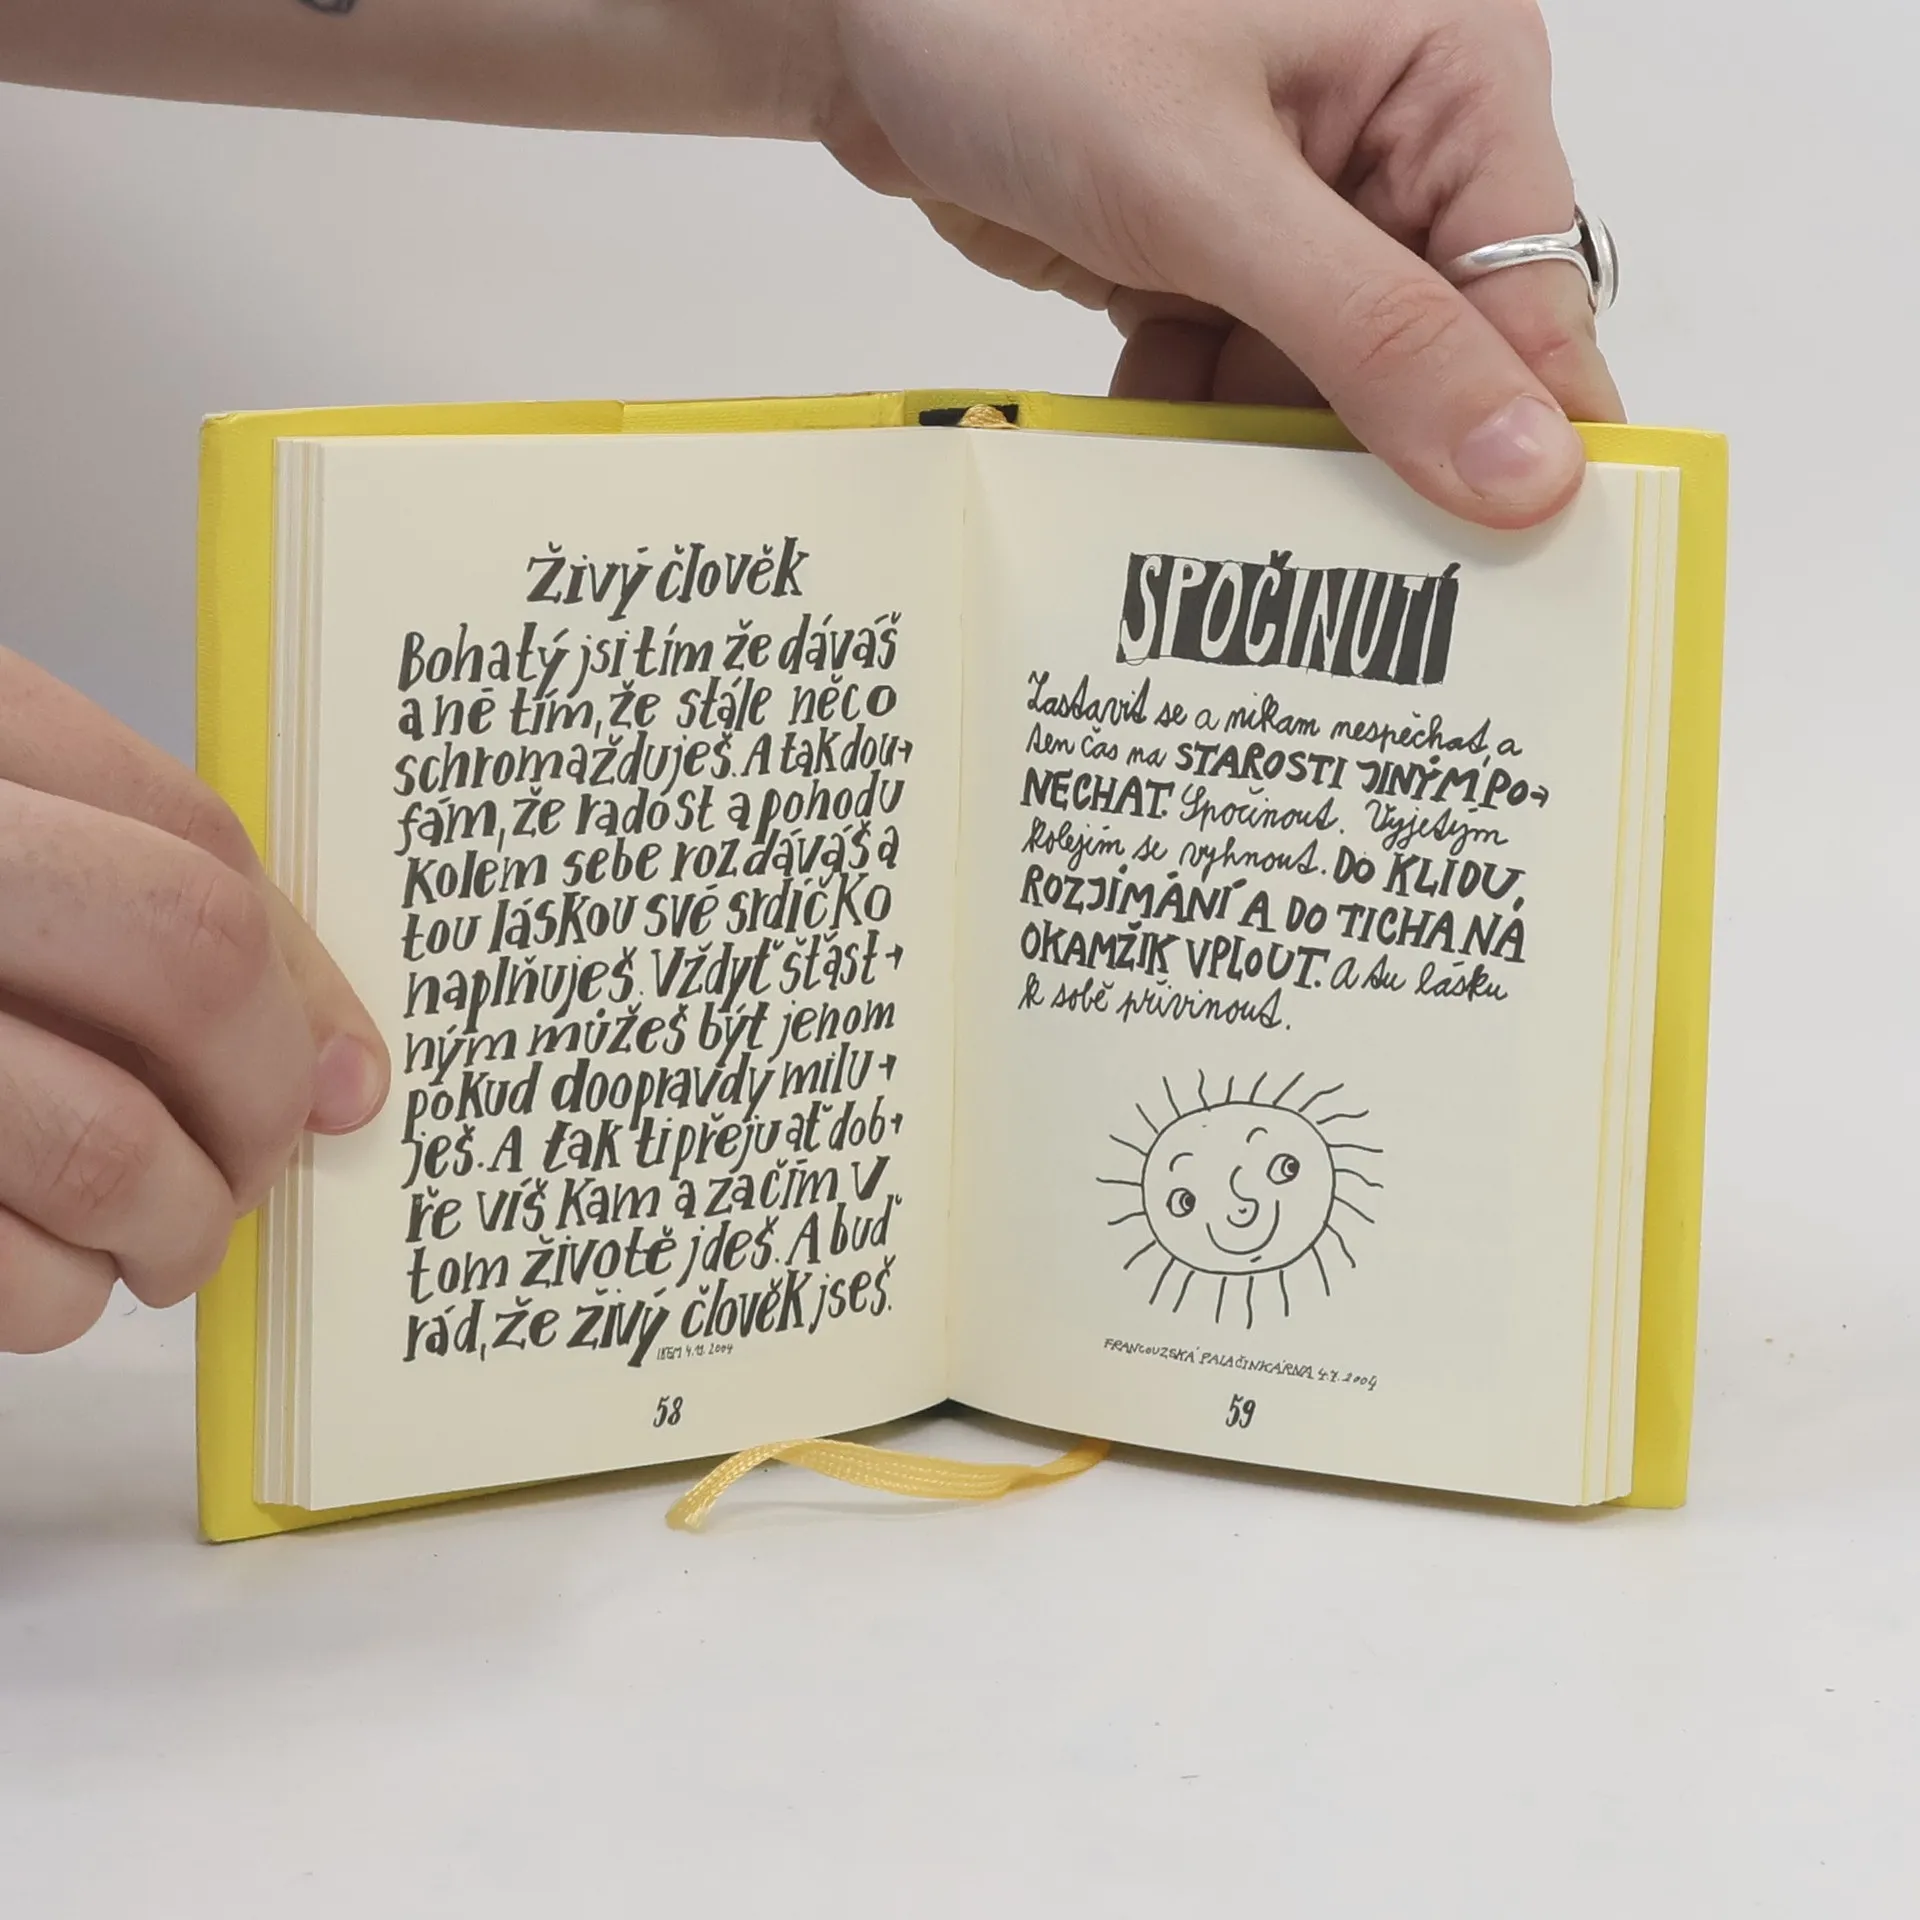 Živý člověk
Bohatý jsi tím že dáváš
a ne tím, že stále něco
schromažďuješ. A tak dou→
fám, že radost a pohodu
kolem sebe rozdáváš a
tou láskou své srdíčko
naplňuješ. Vždyť šťast→
ným můžeš být jenom
pokud doopravdy milu→
ješ. A tak ti přeju ať dob→
ře víš kam a začím v
tom životě jdeš. A buď
rád, že živý člověk jseš.
4.11.2004
58
SPOČINUTÍ
Zastavit se a nikam nespěchat, a
ten čas na STAROSTI JINÝM PO→
NECHAT. Spočinout. Vyjetým
kolejím se vyhnout. DO KLIDU,
ROZJÍMÁNÍ A DO TICHA NA
OKAMŽIK VPLOUT. A tu lásku
k sobě přivinout.
FRANCOUZSKÁ PALAČINKÁRNA 4.7.2004
59